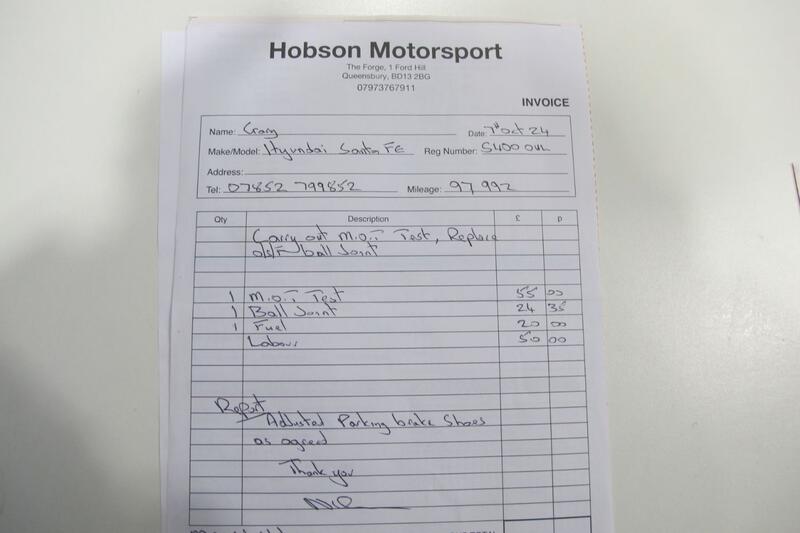 Hobson Motorsport
The Forge, 1 Ford Hill
Queensbury, BD13 2BG
07973767911
INVOICE
Name: Craig Date: 7th Oct 24
Make/Model: Hyundai Santa FE Reg Number: S400 OUL
Address:
Tel: 07852 799852 Mileage: 97,992
Qty Description £ p
Carry out M.O.T Test, Replace
o/s/F ball Joint
1 M.O.T Test 55 00
1 Ball Joint 24 35
1 Fuel 20 00
Labour 50 00
Report
Adjusted Parking brake Shoes
as agreed
Thank you